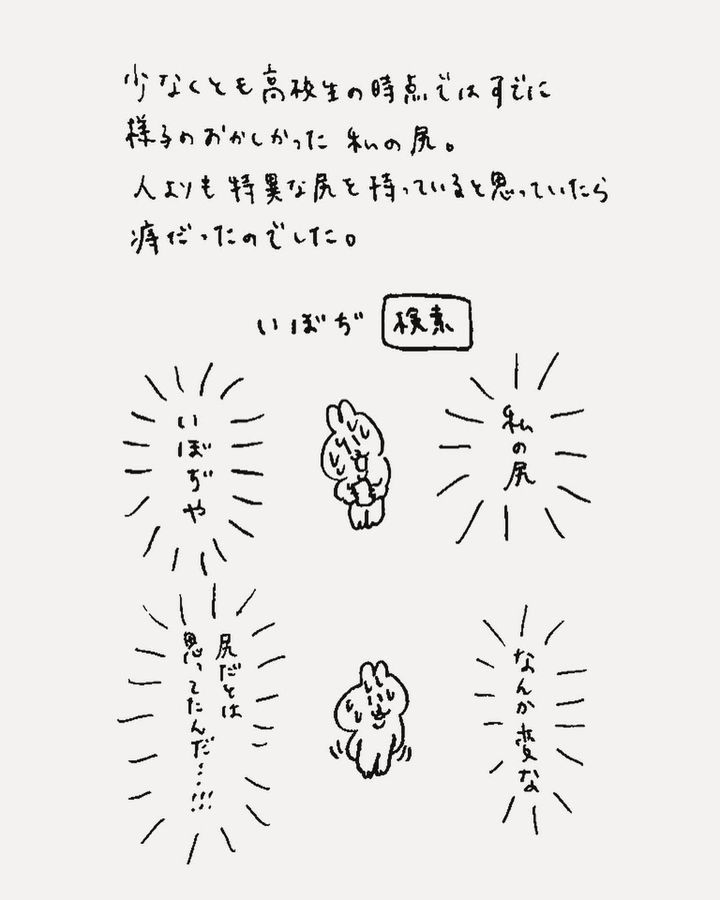 少なくとも高校生の時点ではすでに
様子のおかしかった 私の尻。
人よりも特異な尻を持っていると思っていたら
痔だったのでした。
いぼぢ 検索
私の尻
いぼぢや
なんか変な
尻だとは
思ってたんだ…!!!